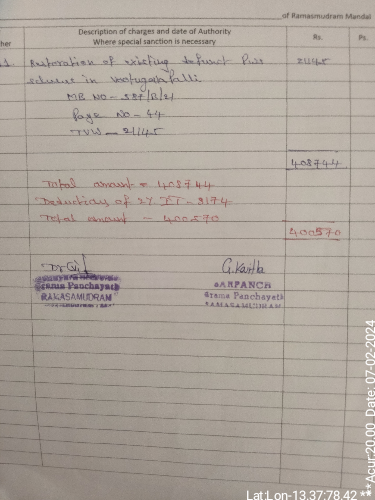 of Ramasmudram Mandal
her
Description of charges and date of Authority
Where special sanction is necessary
Rs.
Ps.
1. Restoration of existing defunct PWS 21145
scheme in
MB NO - 557/B/21
Page No - 44
TVW - 21145
408744
Total amount = 408744
Deduction of 2% IT - 8174
Total amount - 400570
400570
G. Kantha
Grama Panchayath
RAMASAMUDRAM
SARPANCH
Grama Panchayath
RAMASAMUDRAM
Lat:Lon-13.37:78.42 ***Acur:20.00 Date: 07-02-2024